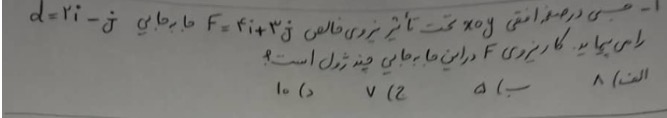 ۱- جسمی در صفحه افقی xoy تحت تأثیر نیروی خالص F = ۴i + ۳j جابه‌جایی d = ۲i - j
را می پیماید. کار نیروی F در این جابه‌جایی چند ژول است؟
الف) ۸ ب) ۵ ج) ۷ د) ۱۰